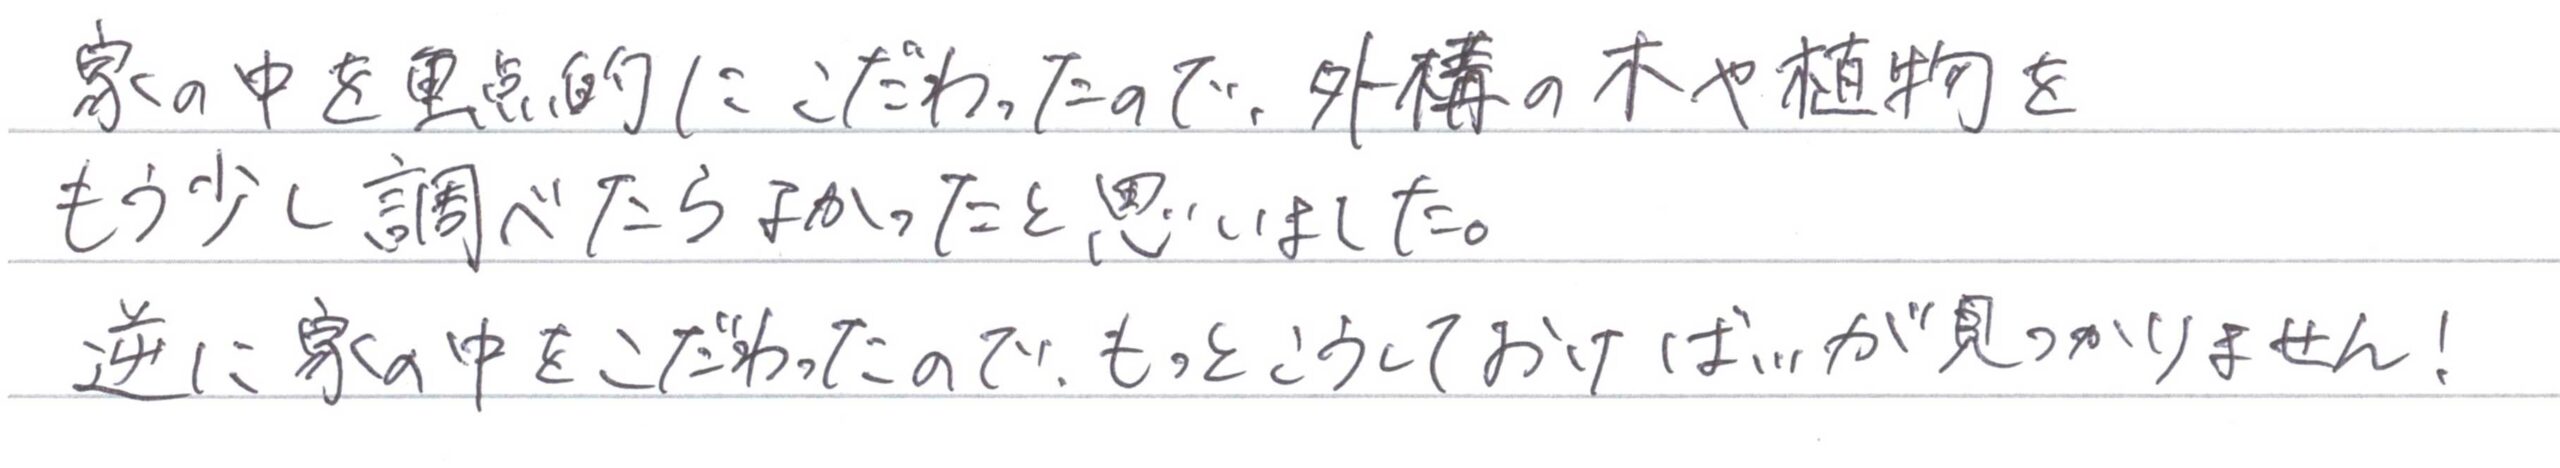 家の中を重点的にこだわったので、外構の木や植物を
もう少し調べたらよかったと思いました。
逆に家の中をこだわったので、もっとこうしておけば…が見つかりません！